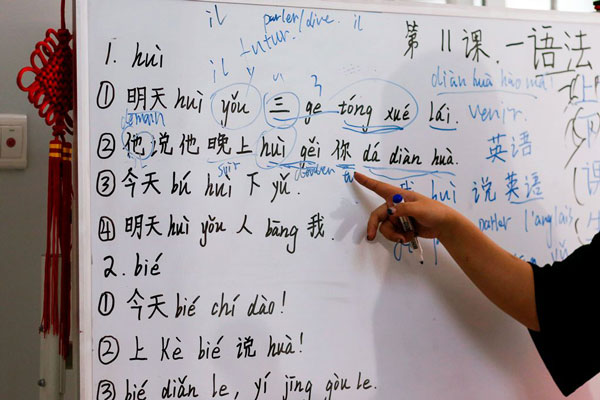 il parler/dire. il
futur.
第11课.一语法
1. huì
il y
diàn huà hào mǎ
① 明天 huì yǒu 三 ge tóng xué lái. venir.
demain
② 他说他晚上 huì gěi 你 dá diàn huà. 英语
soir tu
③ 今天 bú huì 下 yǔ. huì 说英语
parler l'anglais
④ 明天 huì yǒu 人 bāng 我.
2. bié
① 今天 bié chí dào!
② 上 Kè bié 说 huà!
③ bié diǎn le, yí jīng gòu le.